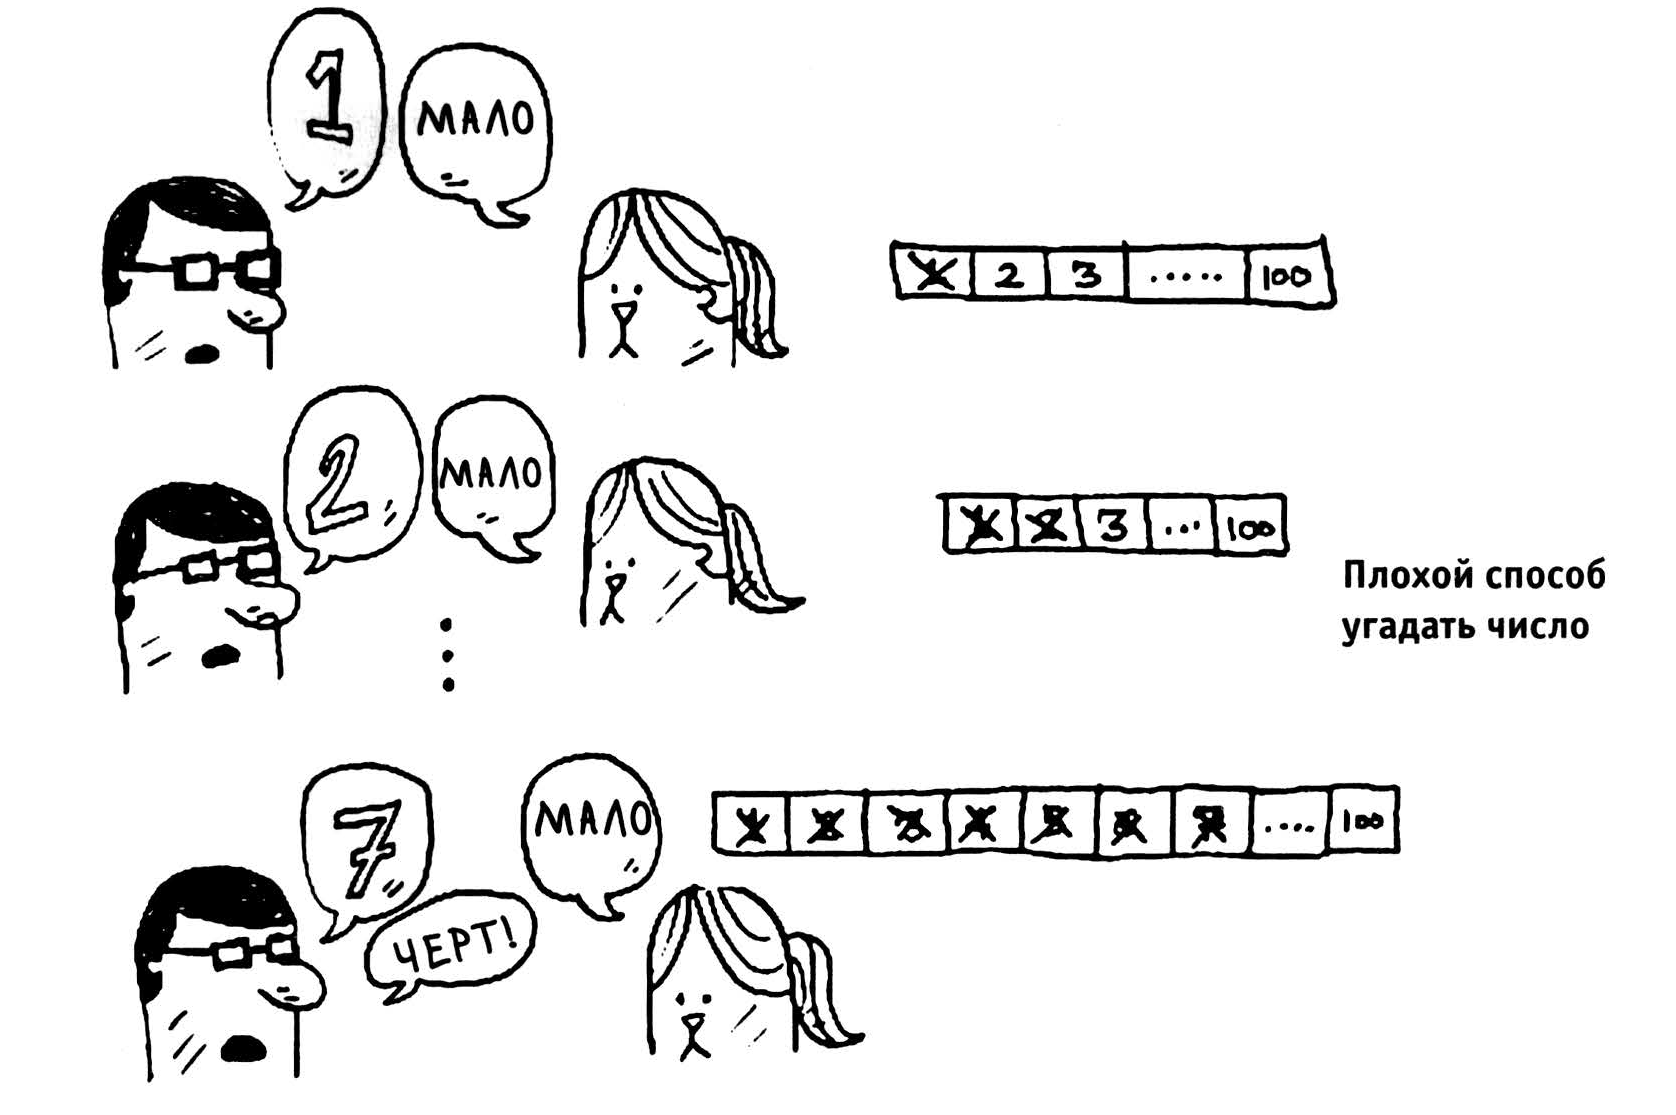 1
МАЛО
1 2 3 ..... 100
2
МАЛО
1 2 3 ... 100
Плохой способ
угадать число
7
МАЛО
1 2 3 4 5 6 7 .... 100
ЧЕРТ!